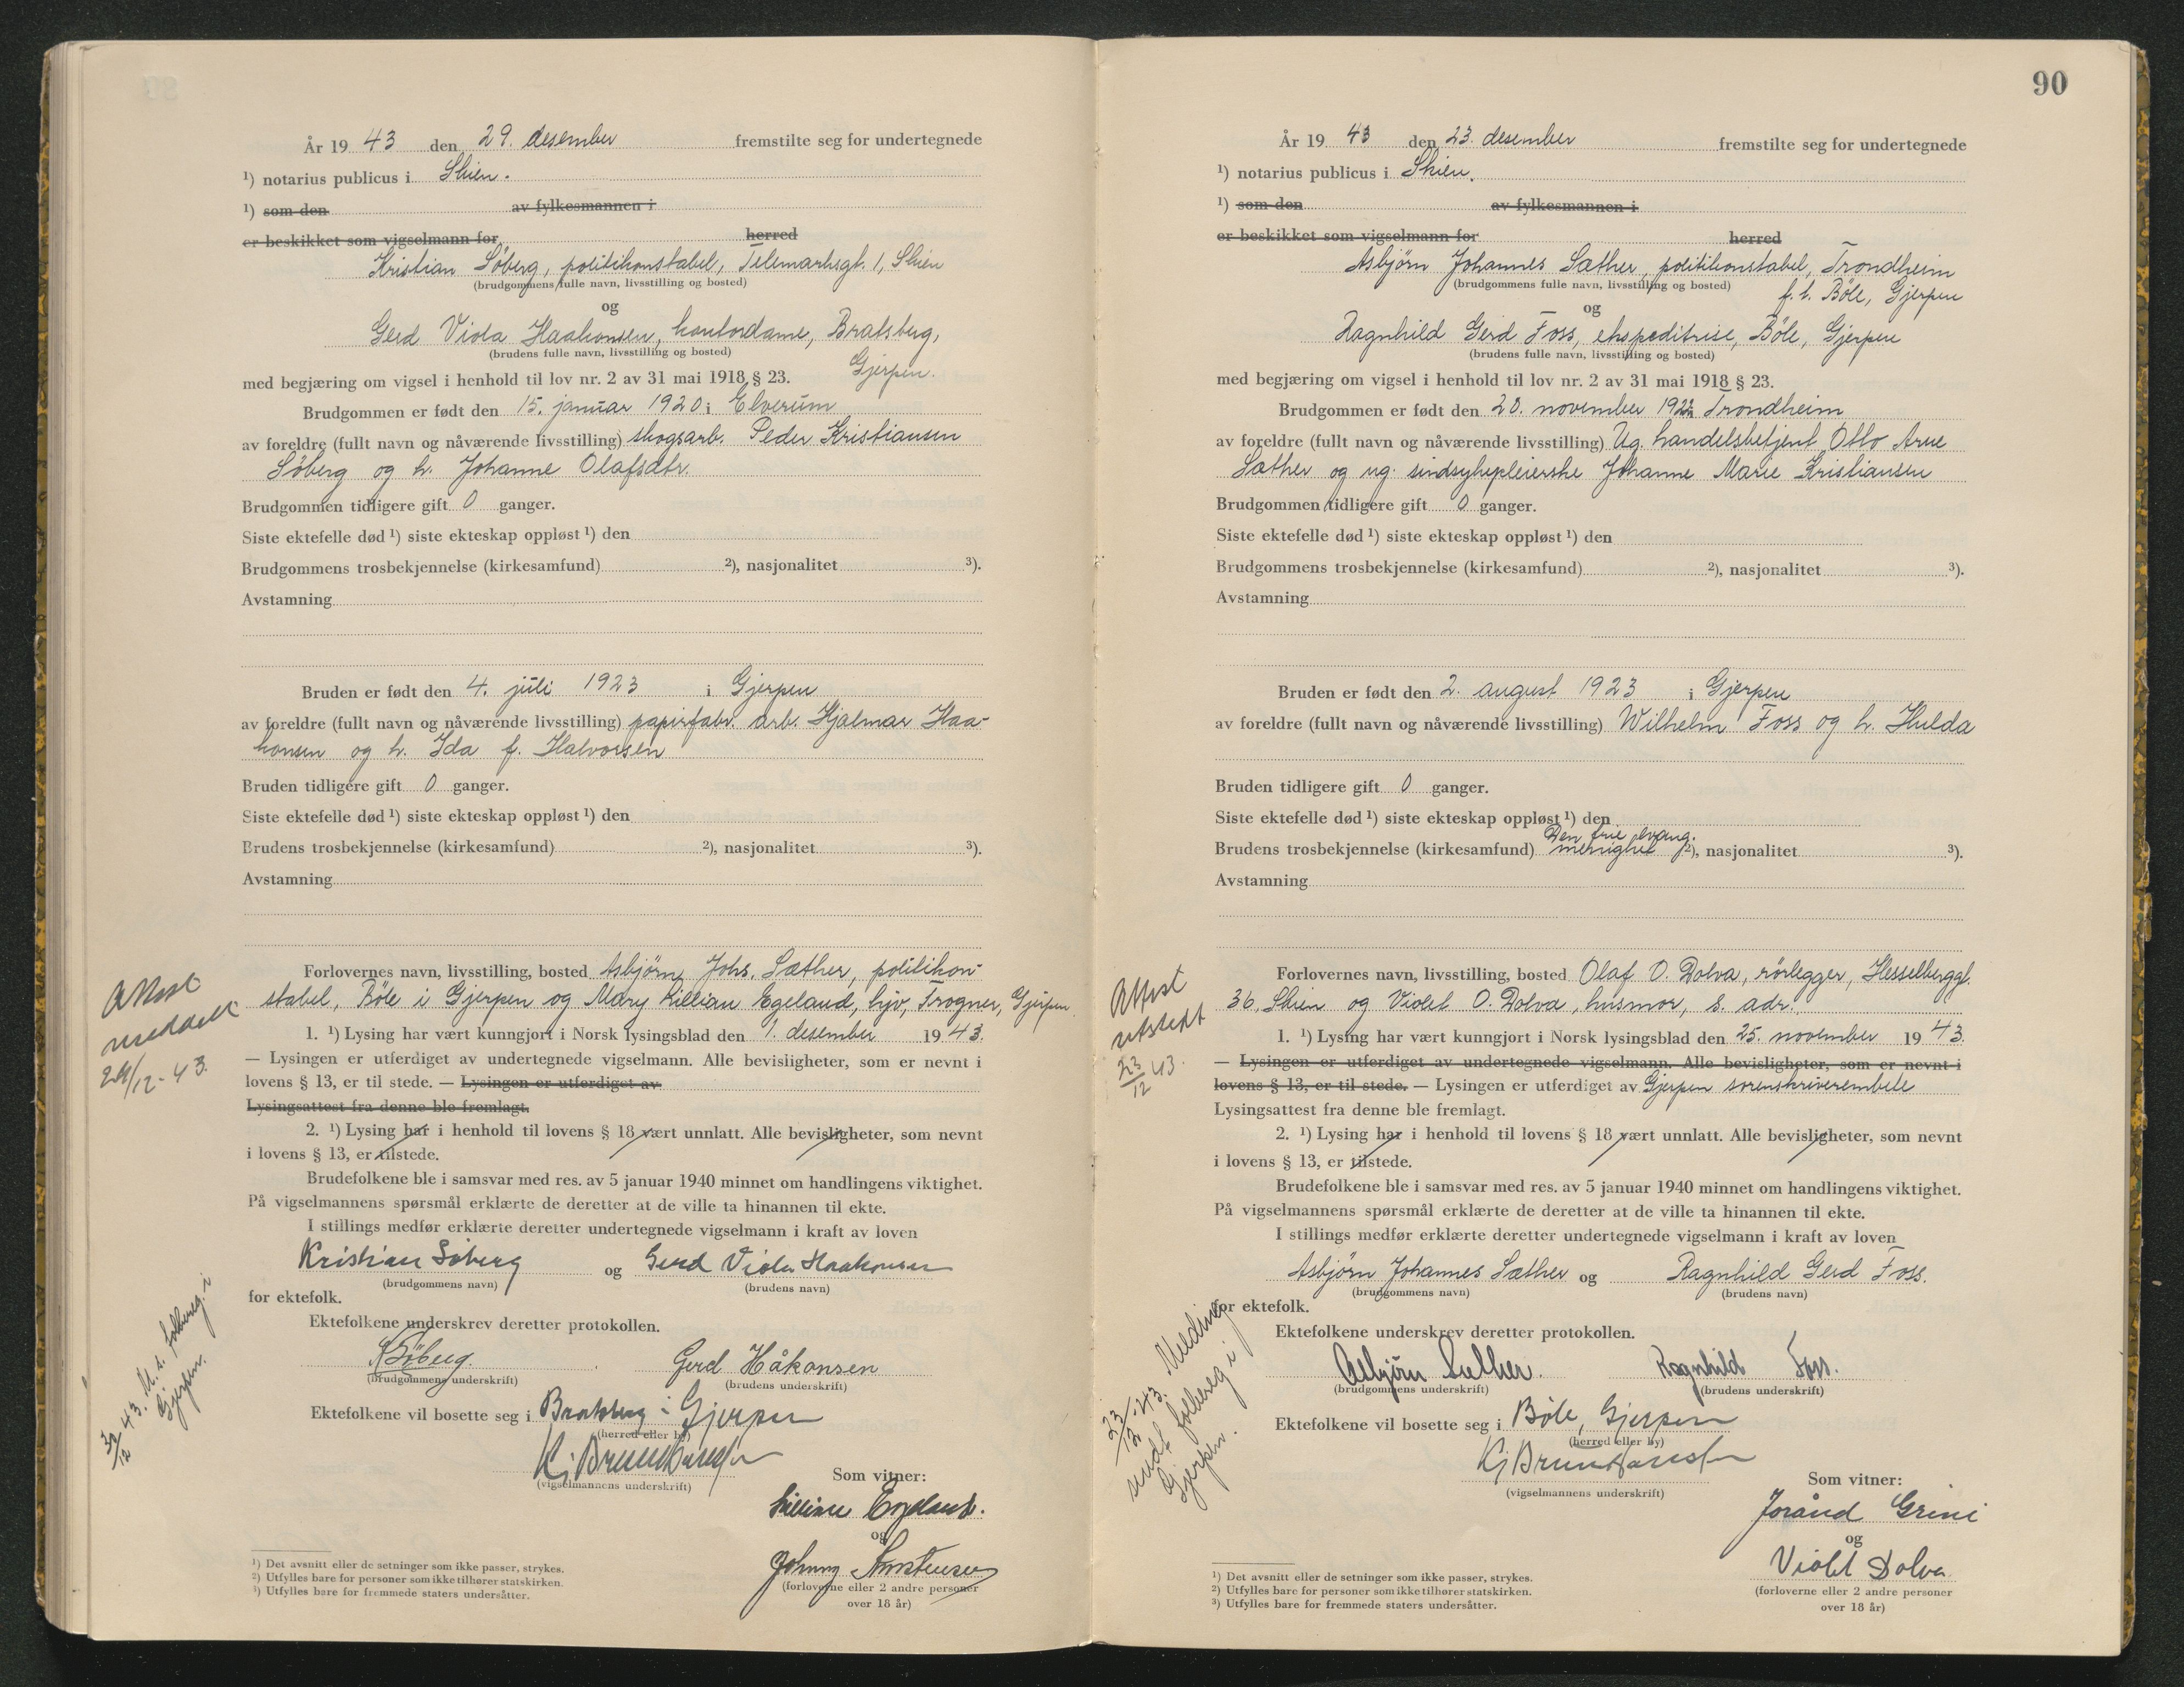 År 19 43 den 29. desember fremstilte seg for undertegnede
¹) notarius publicus i Skien.
¹) som den av fylkesmannen i
er beskikket som vigselmann for herred
Kristian Söberg, politikonstabel, Telemarksgt. 1, Skien
(brudgommens fulle navn, livsstilling og bosted)
og
Gerd Viola Haakonsen, kontordame, Bratsberg,
(brudens fulle navn, livsstilling og bosted)
Gjerpen.
med begjæring om vigsel i henhold til lov nr. 2 av 31 mai 1918 § 23.
Brudgommen er født den 15. januar 1920 i Elverum
av foreldre (fullt navn og nåværende livsstilling) skogsarb. Peder Kristiansen
Söberg og h. Johanne Olafsdtr.
Brudgommen tidligere gift 0 ganger.
Siste ektefelle død ¹) siste ekteskap oppløst ¹) den
Brudgommens trosbekjennelse (kirkesamfund) ²), nasjonalitet ³).
Avstamning
Bruden er født den 4. juli 1923 i Gjerpen
av foreldre (fullt navn og nåværende livsstilling) papirfabr. arb. Hjalmar Haa-
konsen og h. Ida f. Halvorsen
Bruden tidligere gift 0 ganger.
Siste ektefelle død ¹) siste ekteskap oppløst ¹) den
Brudens trosbekjennelse (kirkesamfund) ²), nasjonalitet ³).
Avstamning
Forlovernes navn, livsstilling, bosted Asbjörn Johs. Sæther, politikon-
stabel, Böle i Gjerpen og Mary Lillian Egeland, hjv, Frogner, Gjerpen
Attest
meddelt
29/12-43.
1. ¹) Lysing har vært kunngjort i Norsk lysingsblad den 1. desember 19 43.
— Lysingen er utferdiget av undertegnede vigselmann. Alle bevisligheter, som er nevnt i
lovens § 13, er til stede. — Lysingen er utferdiget av
Lysingsattest fra denne ble fremlagt.
2. ¹) Lysing har i henhold til lovens § 18 vært unnlatt. Alle bevisligheter, som nevnt
i lovens § 13, er tilstede.
Brudefolkene ble i samsvar med res. av 5 januar 1940 minnet om handlingens viktighet.
På vigselmannens spørsmål erklærte de deretter at de ville ta hinannen til ekte.
I stillings medfør erklærte deretter undertegnede vigselmann i kraft av loven
Kristian Söberg og Gerd Viola Haakonsen
(brudgommens navn) (brudens navn)
for ektefolk.
Ektefolkene underskrev deretter protokollen.
K Söberg. Gerd Håkonsen
(brudgommens underskrift) (brudens underskrift)
Ektefolkene vil bosette seg i Bratsberg i Gjerpen
(herred eller by)
12 43. M. s. folkereg. i
Gjerpen.
(vigselmannens underskrift)
Som vitner:
Lillian Egeland.
og
Johnny
(forloverne eller 2 andre personer
over 18 år)
¹) Det avsnitt eller de setninger som ikke passer, strykes.
²) Utfylles bare for personer som ikke tilhører statskirken.
³) Utfylles bare for fremmede staters undersåtter.
90
År 19 43 den 23. desember fremstilte seg for undertegnede
¹) notarius publicus i Skien.
¹) som den av fylkesmannen i
er beskikket som vigselmann for herred
Asbjörn Johannes Sæther, politikonstabel, Trondheim
(brudgommens fulle navn, livsstilling og bosted)
f. t. Böle, Gjerpen
og
Ragnhild Gerd Foss, ekspeditrise, Böle, Gjerpen
(brudens fulle navn, livsstilling og bosted)
med begjæring om vigsel i henhold til lov nr. 2 av 31 mai 1918 § 23.
Brudgommen er født den 20. november 1922 i Trondheim
av foreldre (fullt navn og nåværende livsstilling) Ug. handelsbetjent Otto Arne
Sæther og ug. sindsykepleierske Johanne Marie Kristiansen
Brudgommen tidligere gift 0 ganger.
Siste ektefelle død ¹) siste ekteskap oppløst ¹) den
Brudgommens trosbekjennelse (kirkesamfund) ²), nasjonalitet ³).
Avstamning
Bruden er født den 2. august 1923 i Gjerpen
av foreldre (fullt navn og nåværende livsstilling) Wilhelm Foss og h. Hulda
Bruden tidligere gift 0 ganger.
Siste ektefelle død ¹) siste ekteskap oppløst ¹) den
Den frie evang.
Brudens trosbekjennelse (kirkesamfund) menighet ²), nasjonalitet ³).
Avstamning
Forlovernes navn, livsstilling, bosted Olaf O. Dolva, rörlegger, Hesselberggt.
36, Skien og Violet O. Dolva, husmor, s. adr.
Attest
utstedt
23/12 43.
1. ¹) Lysing har vært kunngjort i Norsk lysingsblad den 25. november 19 43.
— Lysingen er utferdiget av undertegnede vigselmann. Alle bevisligheter, som er nevnt i
lovens § 13, er til stede. — Lysingen er utferdiget av Gjerpen sorenskriverembete
Lysingsattest fra denne ble fremlagt.
2. ¹) Lysing har i henhold til lovens § 18 vært unnlatt. Alle bevisligheter, som nevnt
i lovens § 13, er tilstede.
Brudefolkene ble i samsvar med res. av 5 januar 1940 minnet om handlingens viktighet.
På vigselmannens spørsmål erklærte de deretter at de ville ta hinannen til ekte.
I stillings medfør erklærte deretter undertegnede vigselmann i kraft av loven
Asbjörn Johannes Sæther og Ragnhild Gerd Foss.
(brudgommens navn) (brudens navn)
for ektefolk.
Ektefolkene underskrev deretter protokollen.
Asbjörn Sæther. Ragnhild Foss.
(brudgommens underskrift) (brudens underskrift)
Ektefolkene vil bosette seg i Böle, Gjerpen
(herred eller by)
23/12 43. Melding
sendt folkereg i
Gjerpen.
(vigselmannens underskrift)
Som vitner:
Jorånd Grini
og
Violet Dolva.
(forloverne eller 2 andre personer
over 18 år)
¹) Det avsnitt eller de setninger som ikke passer, strykes.
²) Utfylles bare for personer som ikke tilhører statskirken.
³) Utfylles bare for fremmede staters undersåtter.